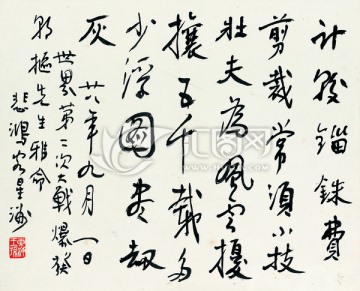 计较锱铢费
剪裁常须小技
壮夫为风云扰
攘五千载多
少浮图尽劫
灰 廿八年九月一日
世界第二次大战爆发
明枢先生雅命
悲鸿客星洲